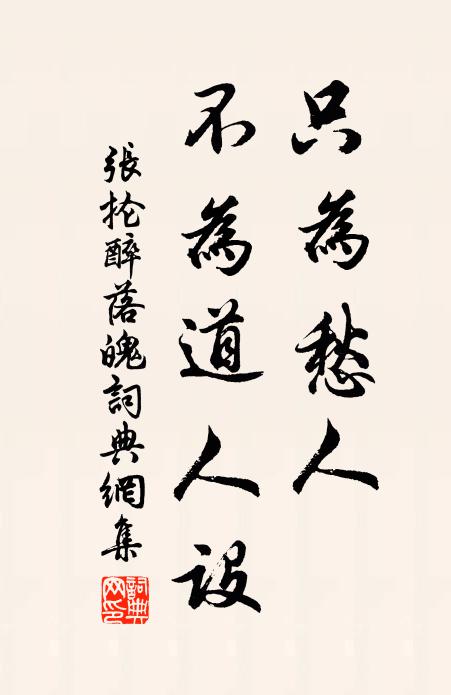 只為愁人
不為道人設
張抡醉落魄詞典網集
詞典网印